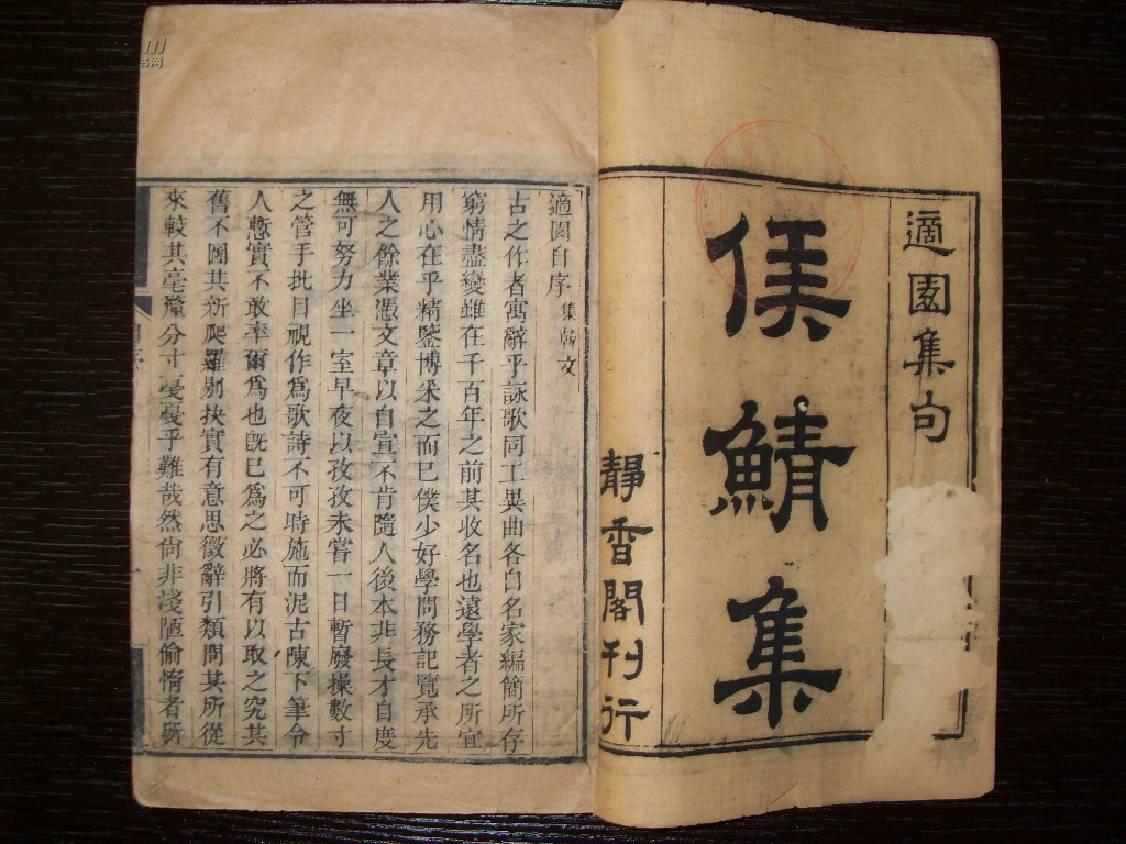 適園集句
侯鯖集
靜香閣刊行
適園自序
集韓文
古之作者寓辭乎詠歌同工異曲各自名家編簡所存
窮情盡變雖在千百年之前其收名也遠學者之所宜
用心在乎精鑒博采之而已僕少好學問務記覽承先
人之餘業憑文章以自宣不肯隨人後本非長才自度
無可努力坐一室早夜以孜孜未嘗一日暫廢操數寸
之管手批目視作爲歌詩不可時施而泥古陳下筆令
人慙實不敢率爾爲也旣已爲之必將有以取之究其
舊不圖其新爬羅剔抉實有意思徵辭引類問其所從
來較其毫釐分寸戞戞乎難哉然尙非淺陋偷惰者所